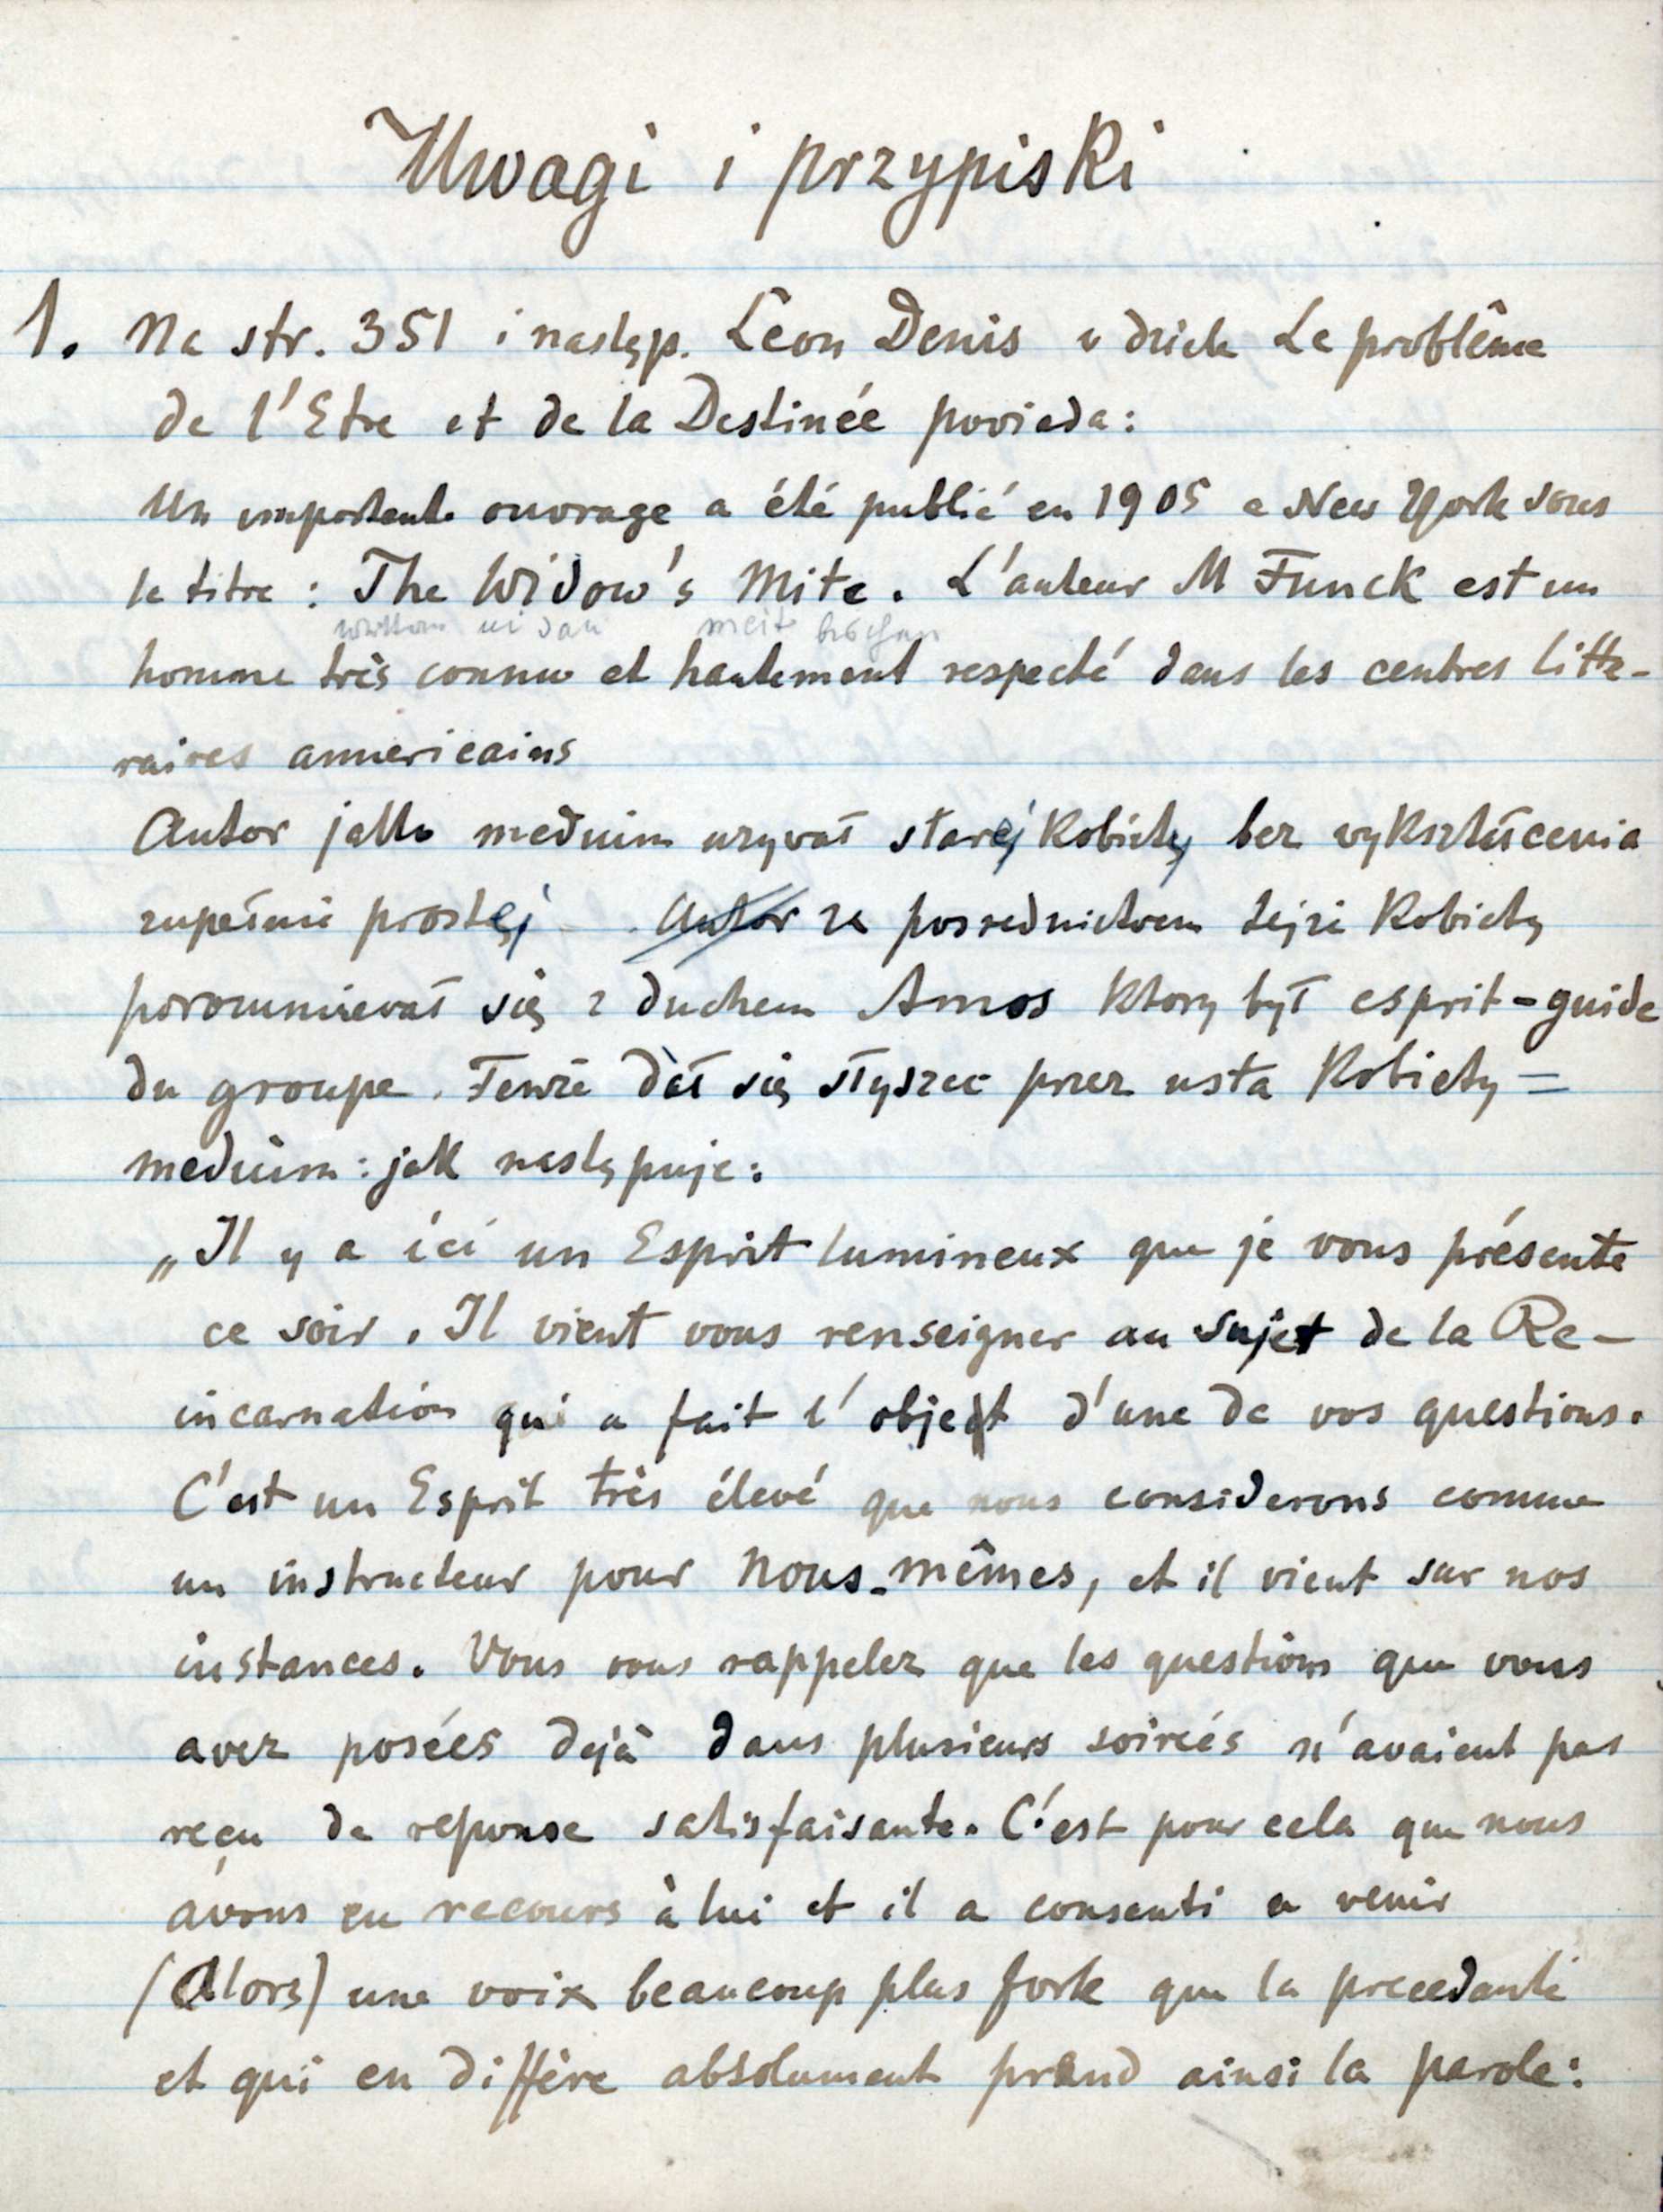 Uwagi i przypiski
1. Na str. 351 i następ. Léon Denis w dziele Le problême
de l'Etre et de la Destinée powiada:
Un important ouvrage a été publié en 1905 a New York sous
le titre : The Widow's Mite. L'auteur M Funck est un
meit
homme très connu et hautement respecté dans les centres litte-
raires americains
Autor jako medium używał starej kobiety bez wykształcenia
zupełnie prostej Autor za posrednictwem tejże kobiety
porozumiewał się z duchem Amos ktory był esprit-guide
du groupe. Tenże dał się słyszec przez usta kobiety=
medium: jak następuje:
„Il y a ici un Esprit lumineux que je vous présente
ce soir. Il vient vous renseigner au sujet de la Re-
incarnation qui a fait l'objet d'une de vos questions.
C'est un Esprit très élevé que nous considerons comme
un instructeur pour nous-mêmes, et il vient sur nos
instances. Vous vous rappelez que les questions que vous
avez posées dejà dans plusieurs soireés n'avaient pas
reçu de reponse satisfaisante. C'est pour cela que nous
avons eu recours à lui et il a consenti a venir
(Alors) une voix beaucoup plus forte que la precedante
et qui en diffère absolument prend ainsi la parole: